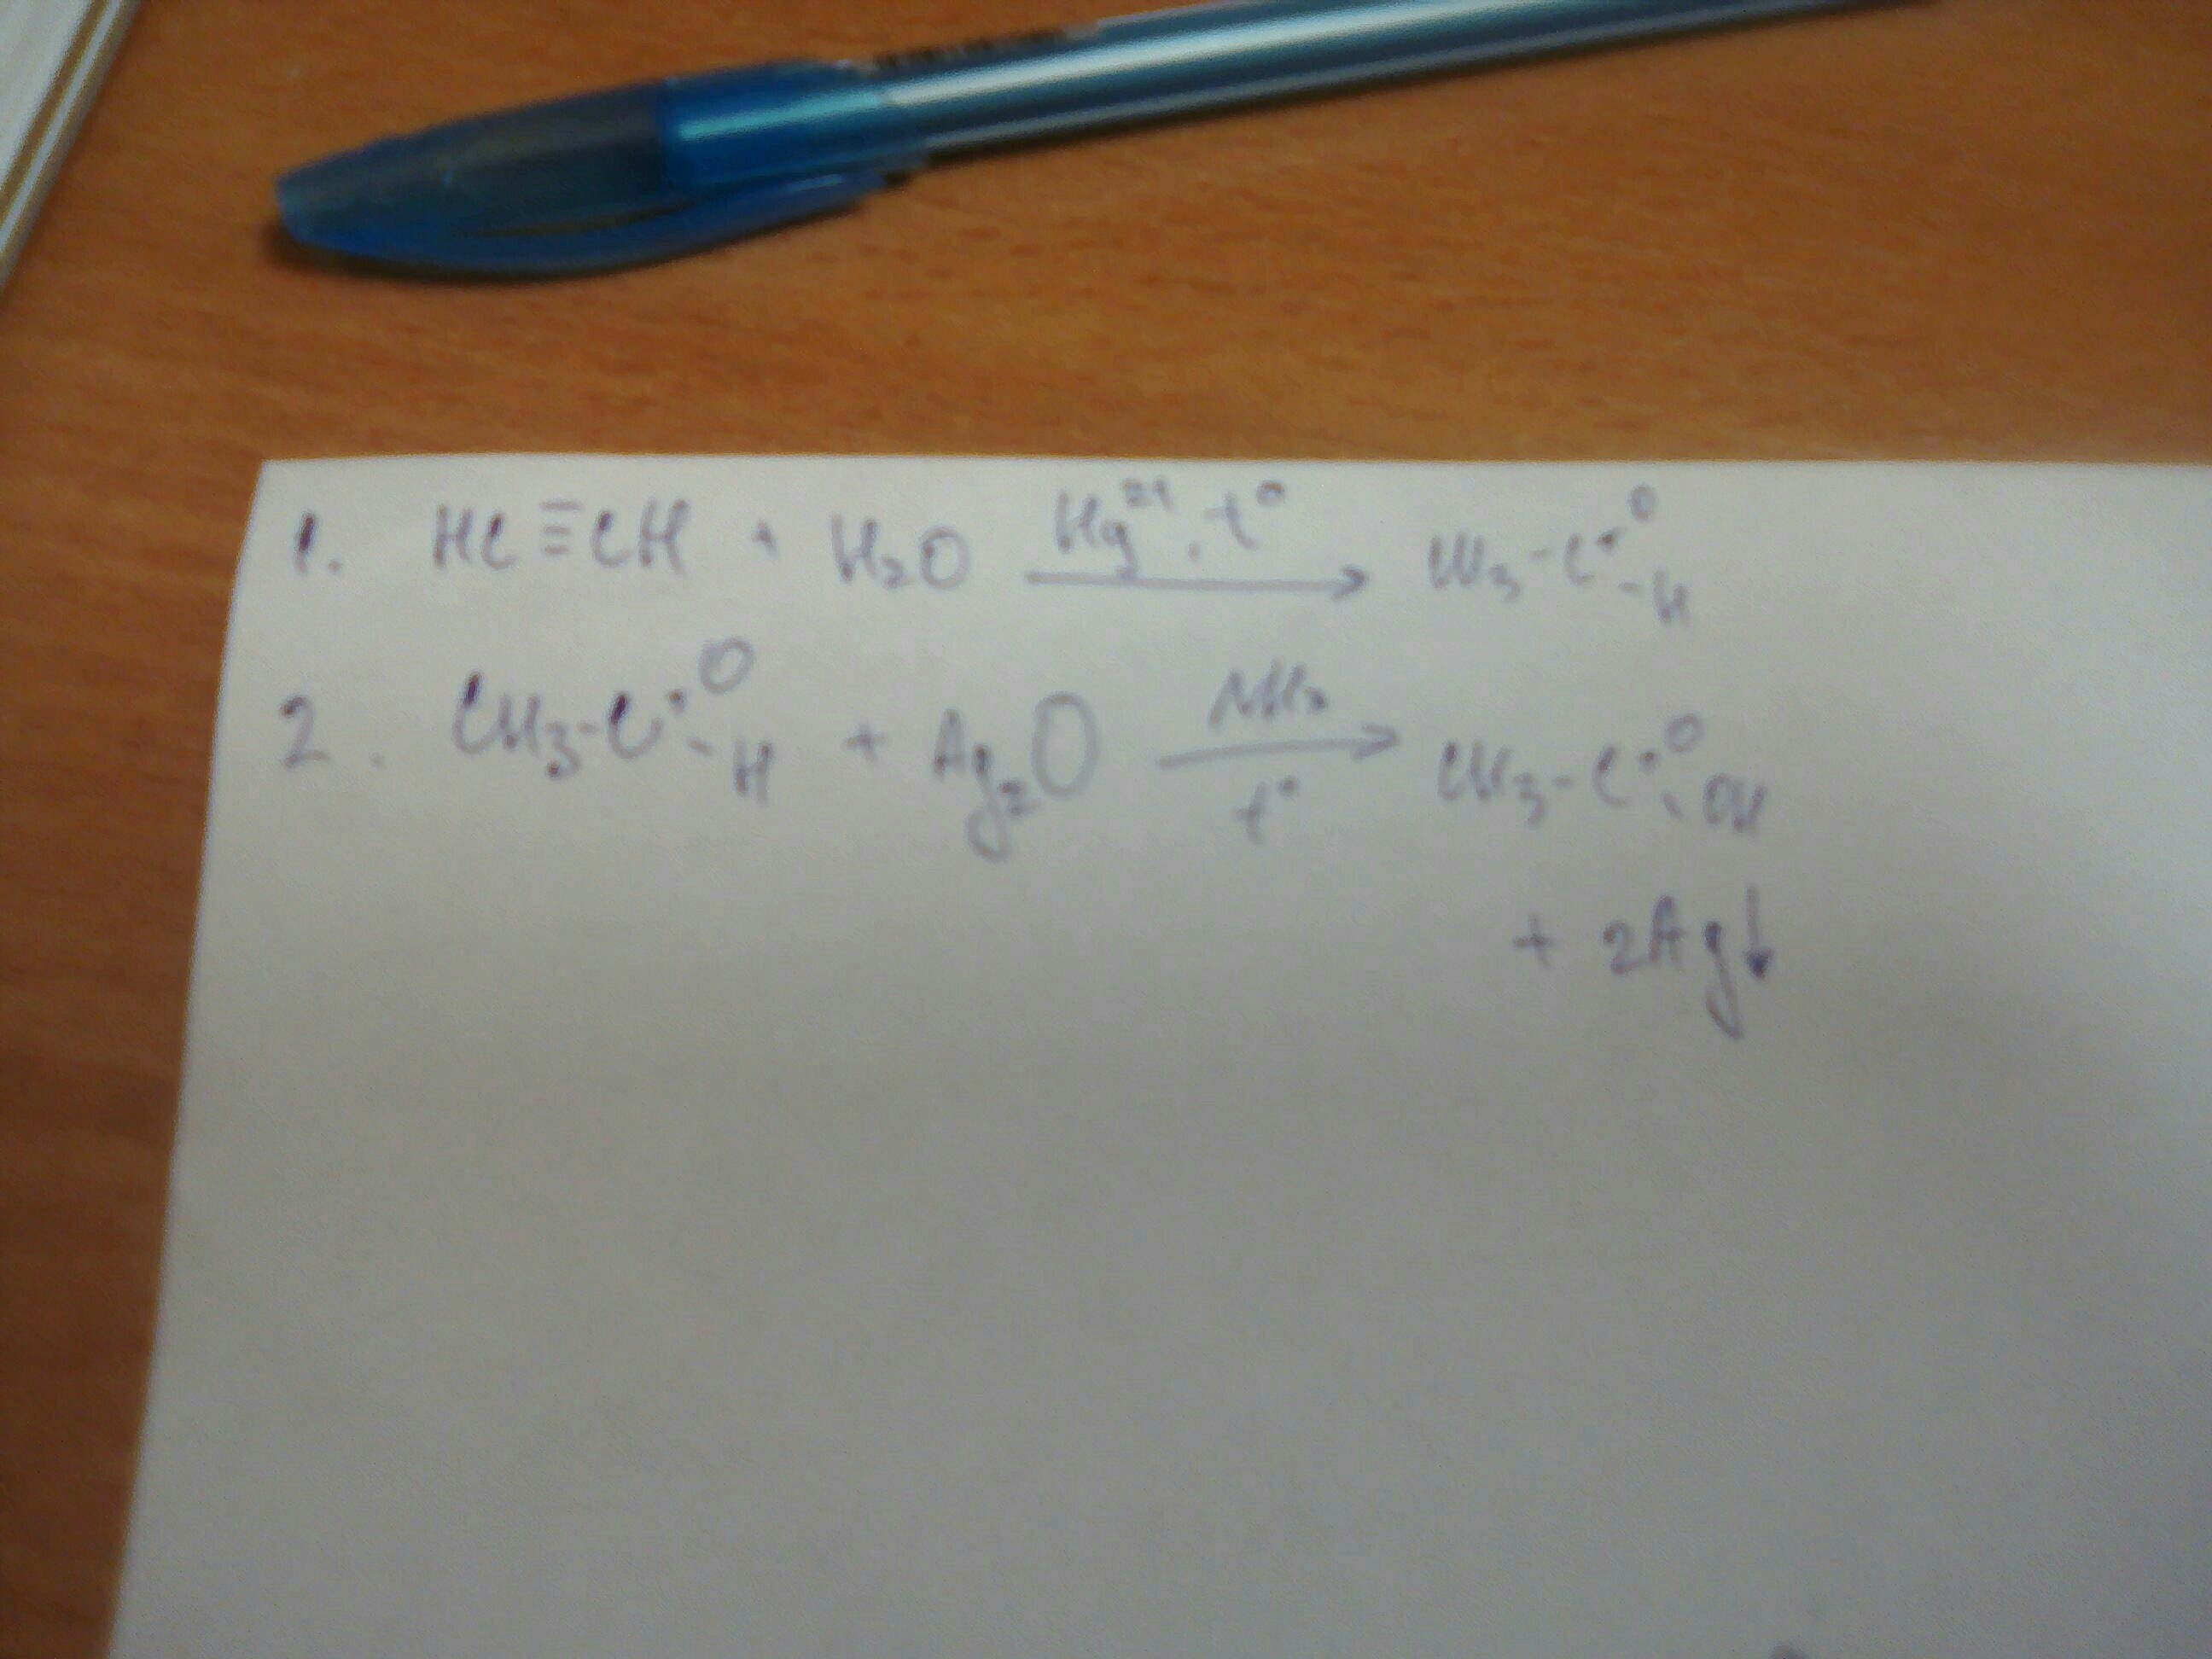 1. HC≡CH + H₂O Hg²⁺, t° → CH₃-C=O-H
2. CH₃-C=O-H + Ag₂O NH₃ t° → CH₃-C=O-OH
+ 2Ag↓